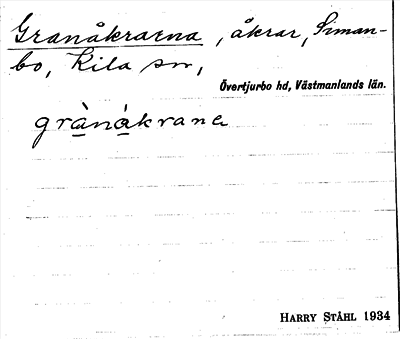 Granåkrarna, åkrar, Siman-
bo, Kila sn,
Övertjurbo hd, Västmanlands län.
grànàkrana
HARRY STÅHL 1934